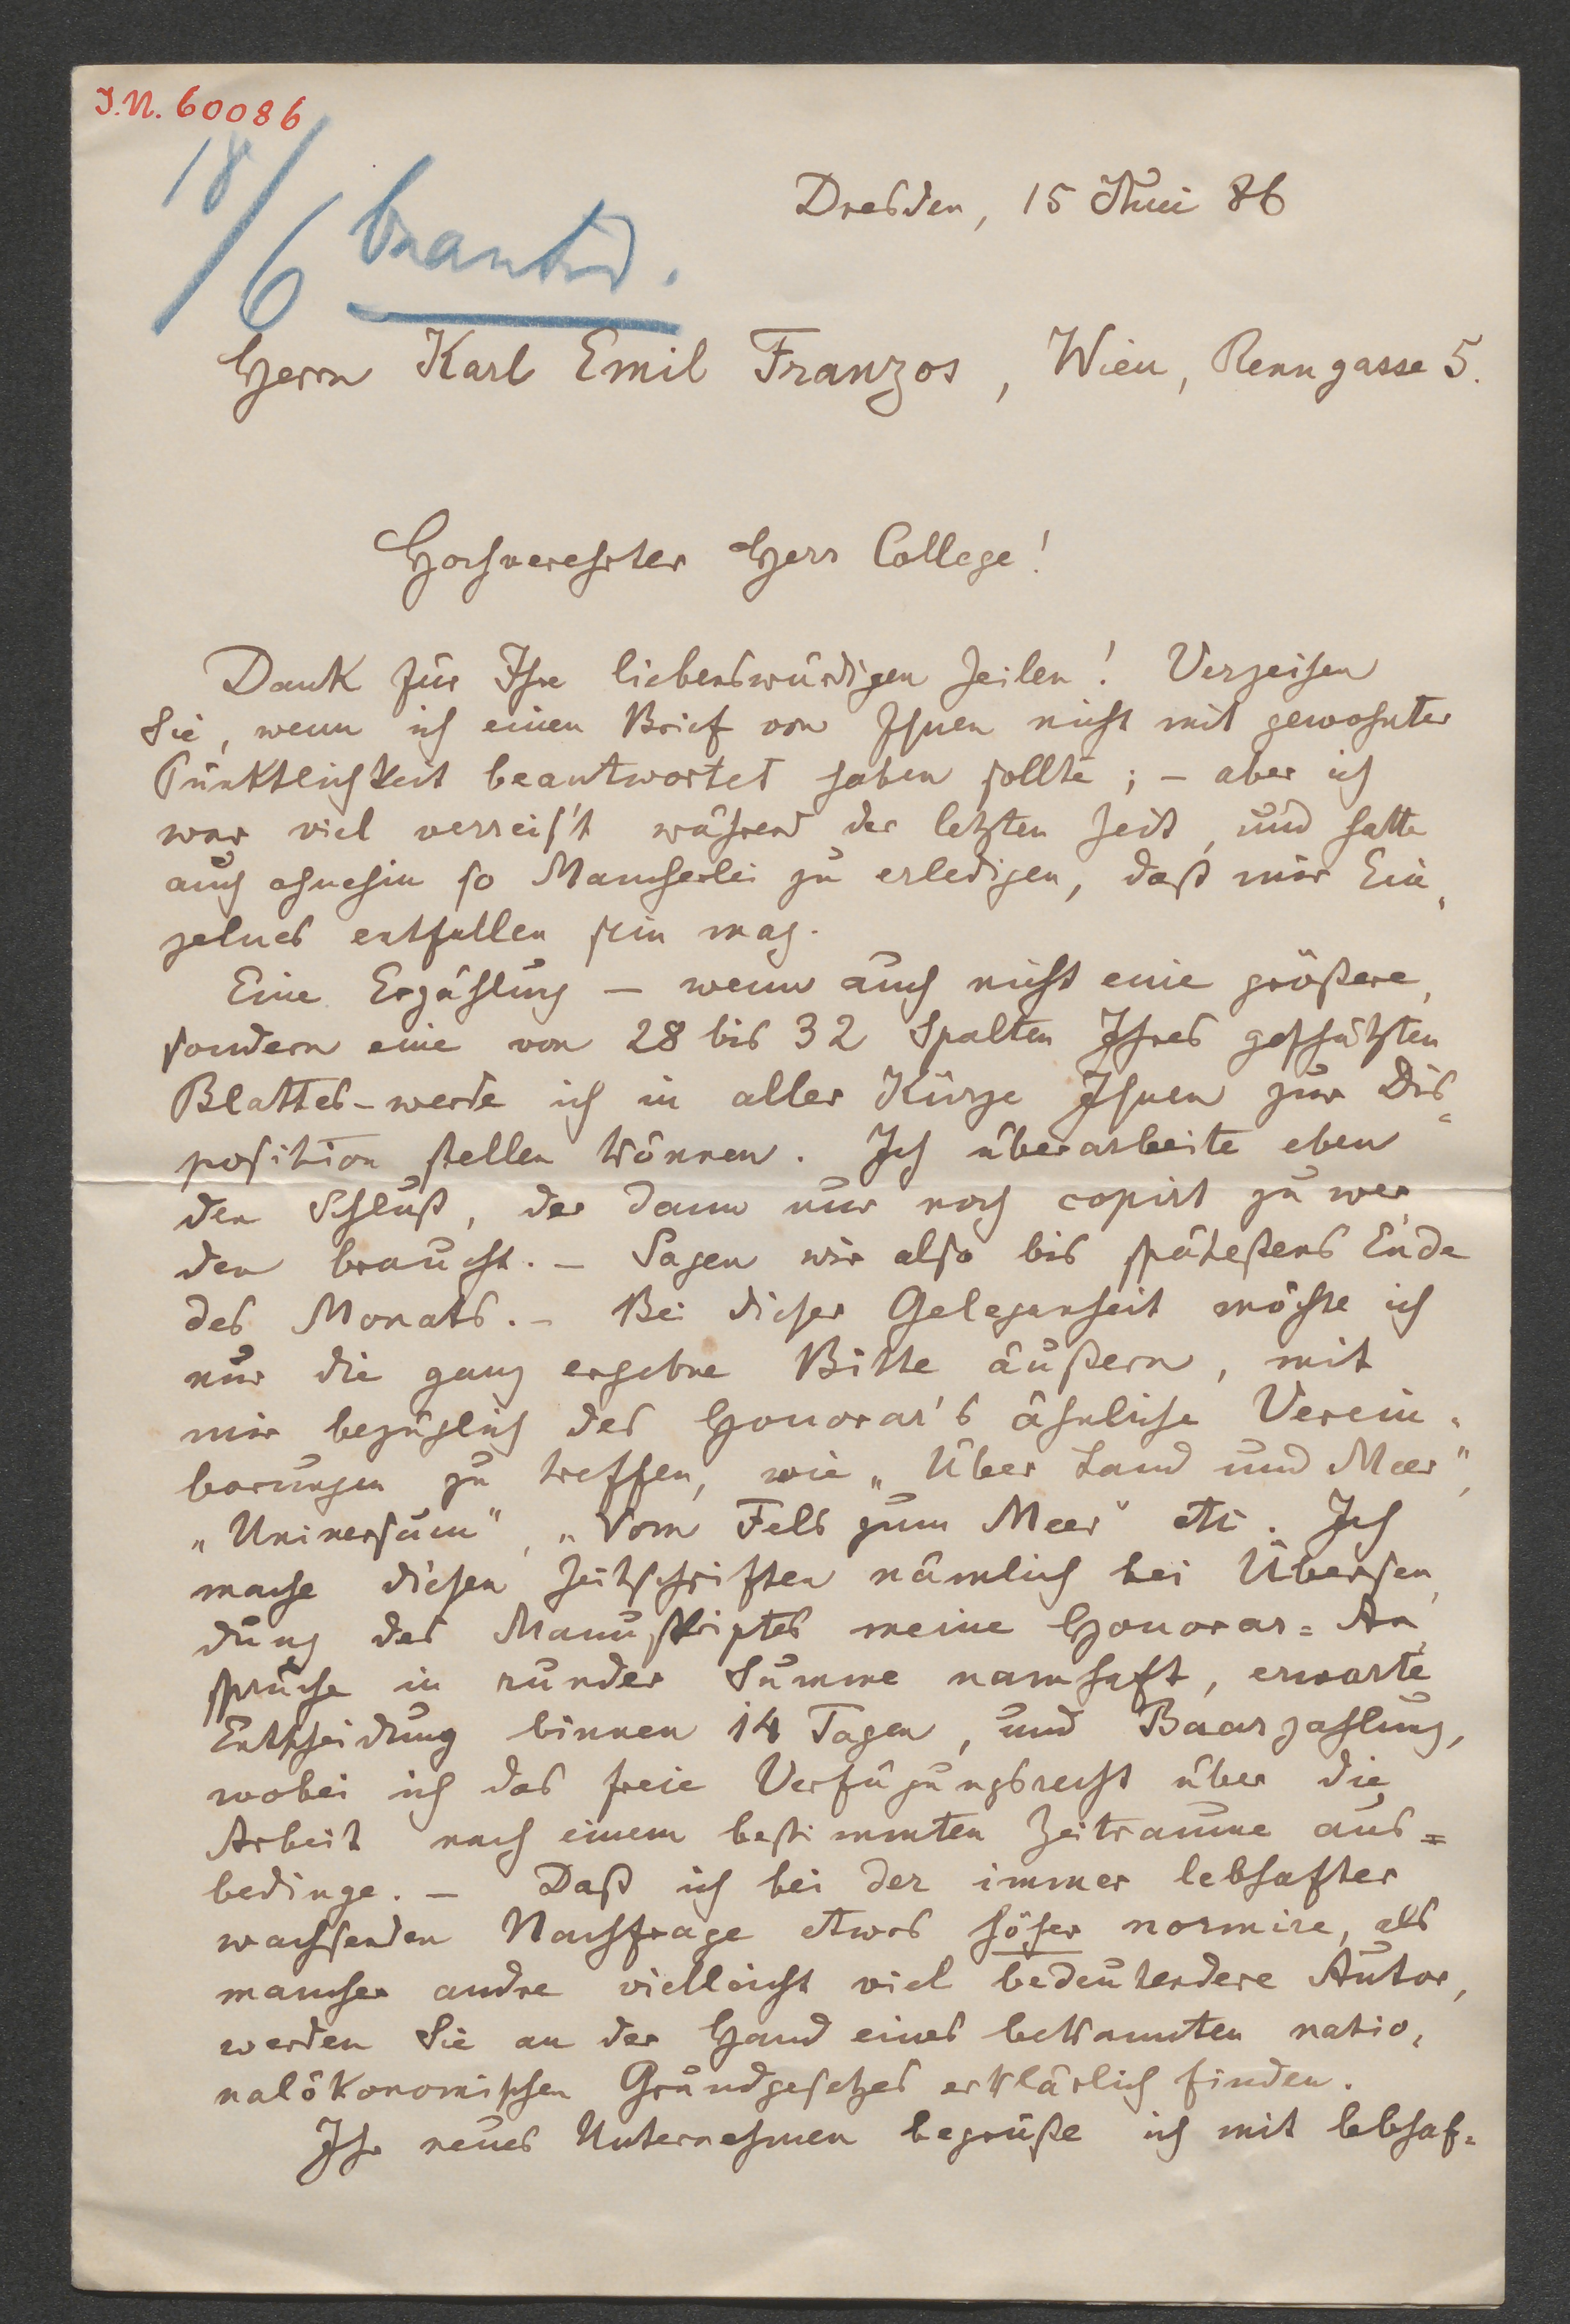 J.N. 60086
18/6 beantw.
Dresden, 15 Juni 86
Herrn Karl Emil Franzos, Wien, Renngasse 5.
Hochverehrter Herr College!
Dank für Ihre liebenswürdigen Zeilen! Verzeihen
Sie, wenn ich einen Brief von Ihnen nicht mit gewohnter
Pünktlichkeit beantwortet haben sollte; – aber ich
war viel verreis't während der letzten Zeit, und hatte
auch ohnehin so Mancherlei zu erledigen, daß mir Ein-
zelnes entfallen sein mag.
Eine Erzählung – wenn auch nicht eine größere,
sondern eine von 28 bis 32 Spalten Ihres geschätzten
Blattes – werde ich in aller Kürze Ihnen zur Dis=
position stellen können. Ich überarbeite eben
den Schluß, der dann nur noch copirt zu wer-
den braucht. – Sagen wir also bis spätestens Ende
des Monats. – Bei dieser Gelegenheit möchte ich
nur die ganz ergebne Bitte äußern, mit
mir bezüglich des Honorar's ähnliche Verein-
barungen zu treffen, wie „Über Land und Meer",
„Universum", „Vom Fels zum Meer" etc. Ich
mache diesen Zeitschriften nämlich bei Übersen-
dung des Manuskriptes meine Honorar=An-
sprüche in runder Summe namhaft, erwarte
Entscheidung binnen 14 Tagen, und Baarzahlung,
wobei ich das freie Verfügungsrecht über die
Arbeit nach einem bestimmten Zeitraume aus=
bedinge. – Daß ich bei der immer lebhafter
wachsenden Nachfrage etwas höher normire, als
mancher andre vielleicht viel bedeutendere Autor,
werden Sie an der Hand eines bekannten natio-
nalökonomischen Grundgesetzes erklärlich finden.
Ihr neues Unternehmen begrüße ich mit lebhaf-